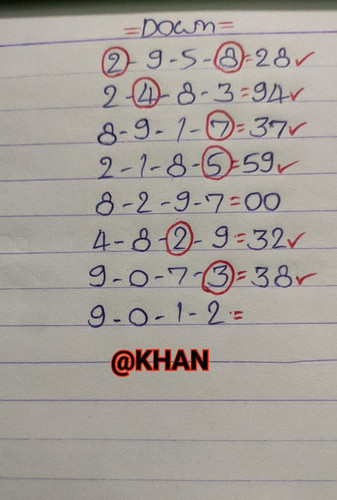 =Down=
2-9-5-8=28✓
2-4-8-3=94✓
8-9-1-7=37✓
2-1-8-5=59✓
8-2-9-7=00
4-8-2-9=32✓
9-0-7-3=38✓
9-0-1-2=
@KHAN